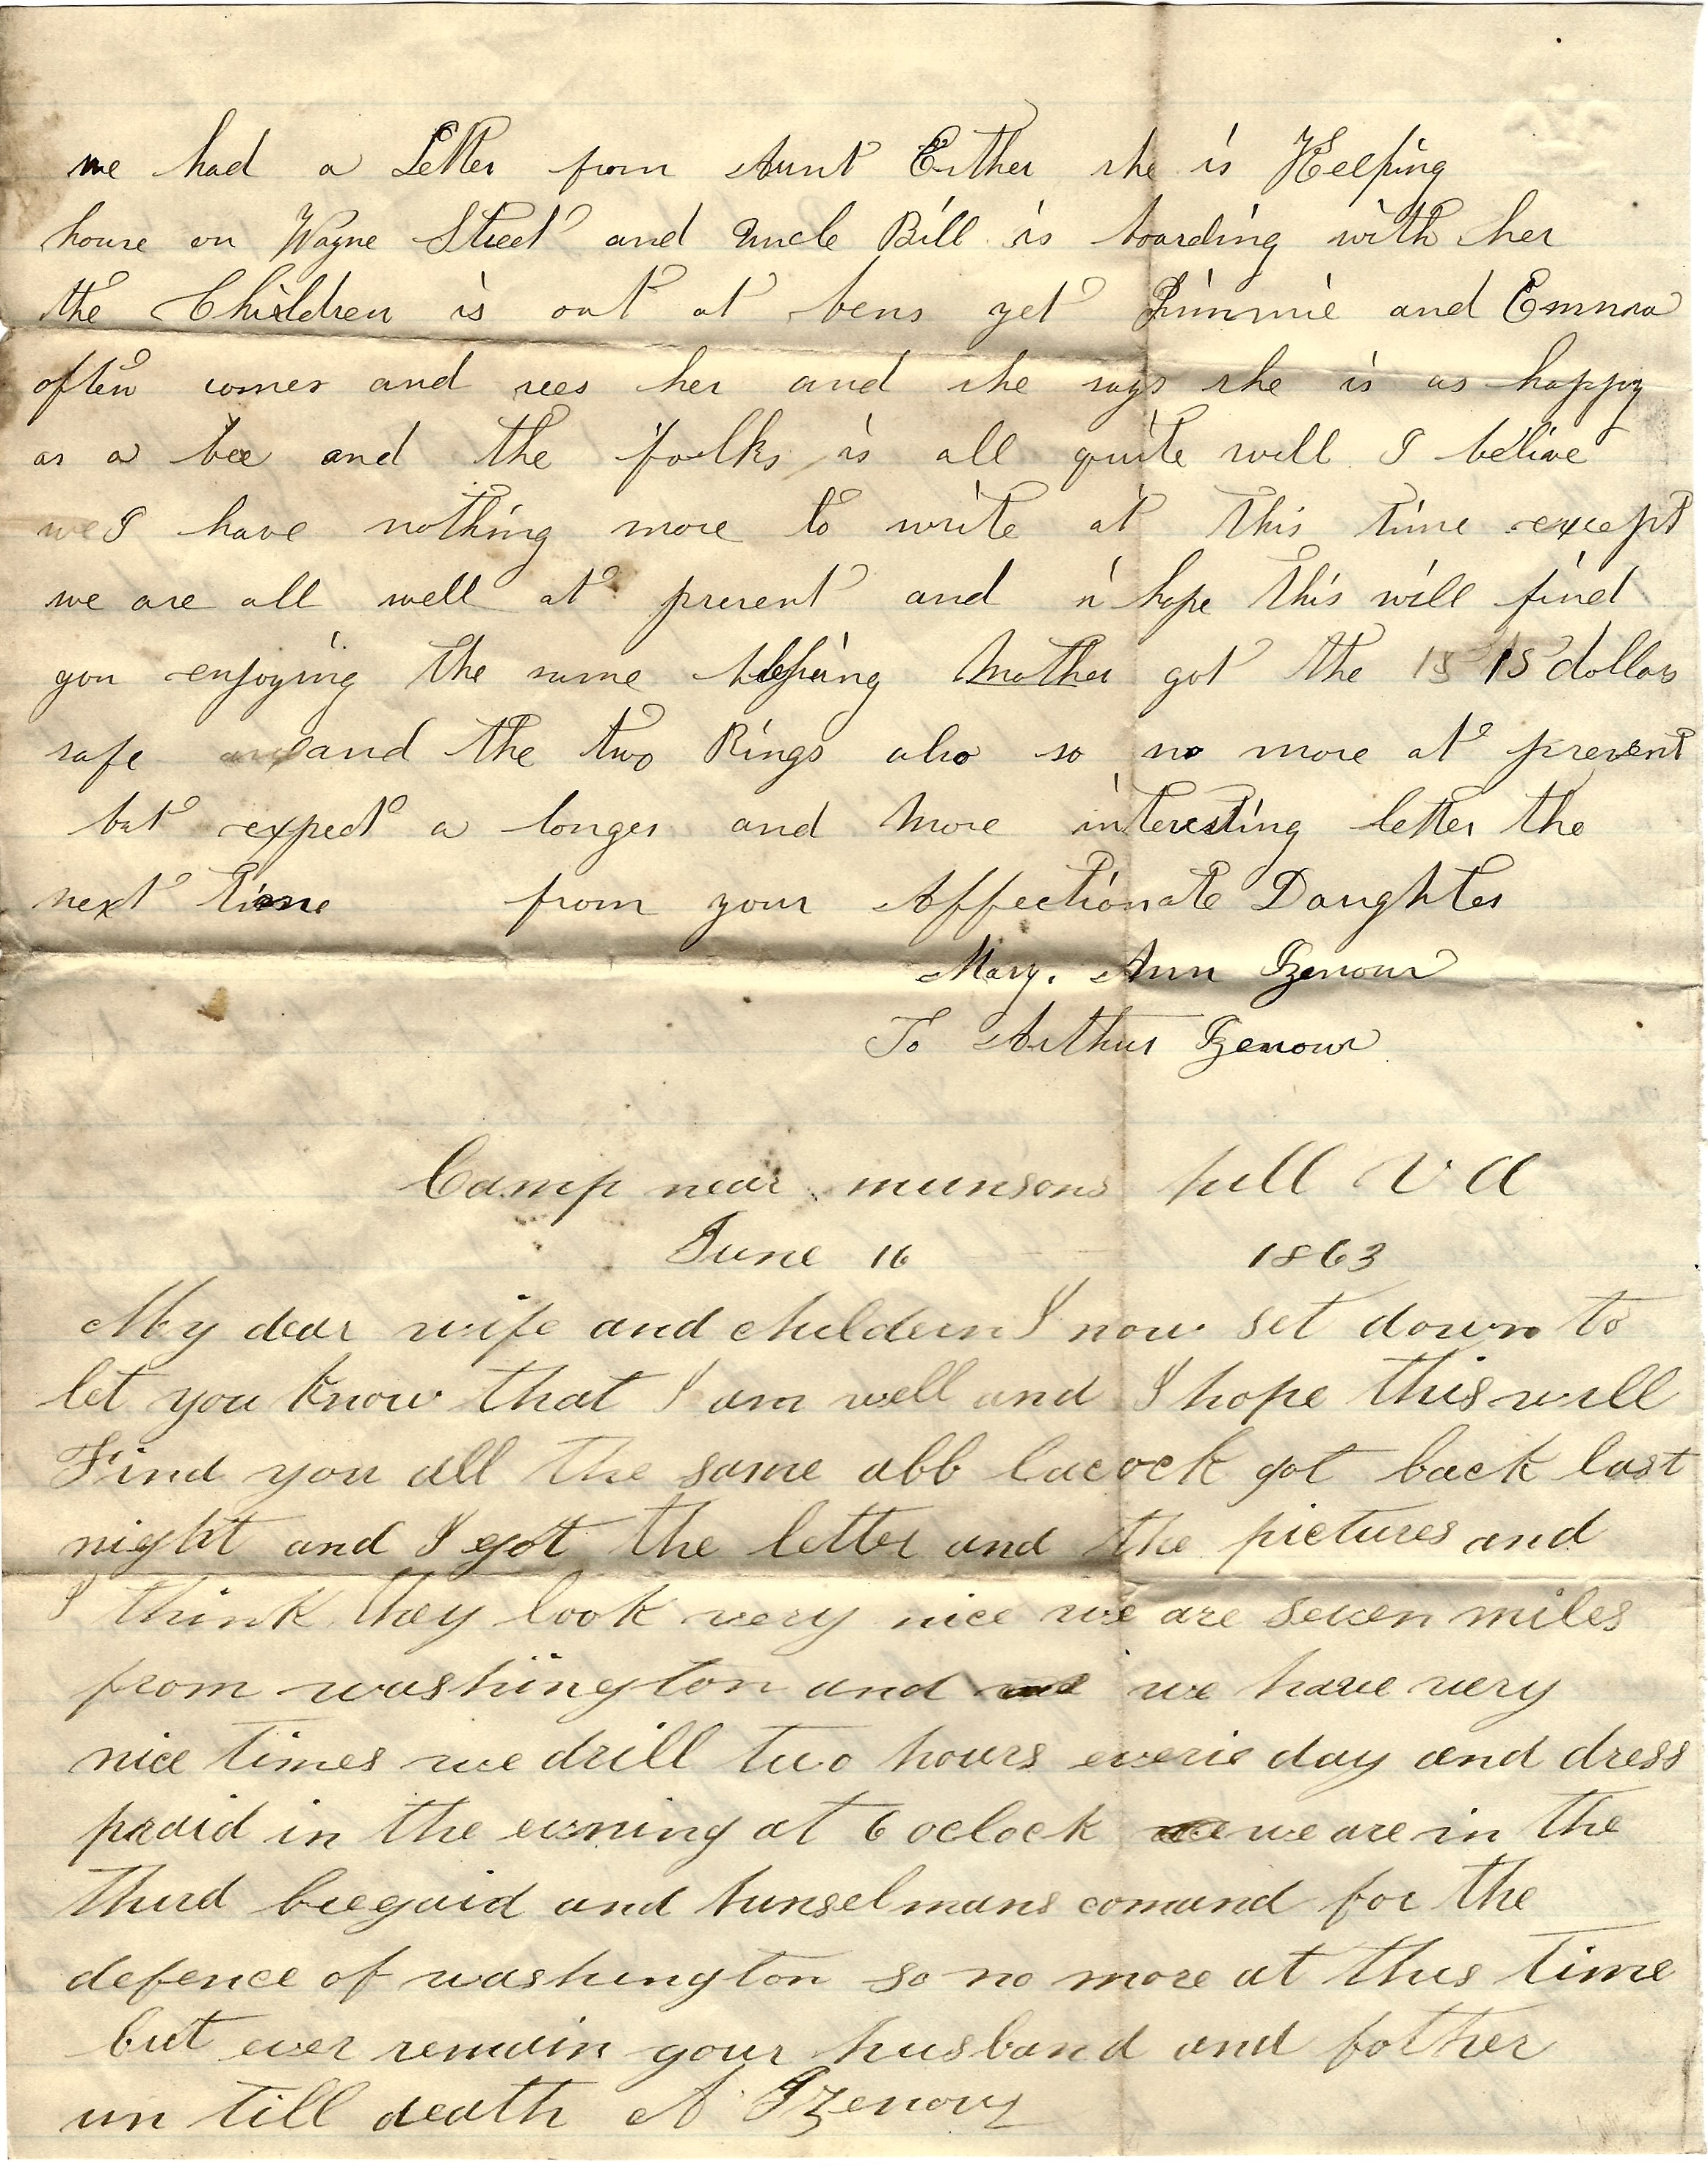 we had a Letter from Aunt Esther she is Keeping
house on Wayne Street and Uncle Bill is boarding with her
the Children is out at bens yet Jimmie and Emma
often comes and sees her and she says she is as happy
as a bee and the folks is all quite well I belive
we I have nothing more to write at this time except
we are all well at present and i hope this will find
you enjoying the same blessing Mother got the 15 15 dollars
safe and and the two Rings also so no more at present
but expect a longer and more interesting letter the
next time from your Affectionate Daughter
Mary. Ann Izenour
To Arthur Izenour
Camp near munsons hill VA
June 16 1863
My dear wife and children I now set down to
let you know that I am well and I hope this will
Find you all the same abb lacock got back last
night and I got the letter and the pictures and
I think they look very nice we are seven miles
from washington and we have very
nice times we drill two hours everie day and dress
praid in the evening at 6 oclock we are in the
third breegaid and hunselmans comand for the
defence of washington so no more at this time
but ever remain your husband and father
un till death A Izenour